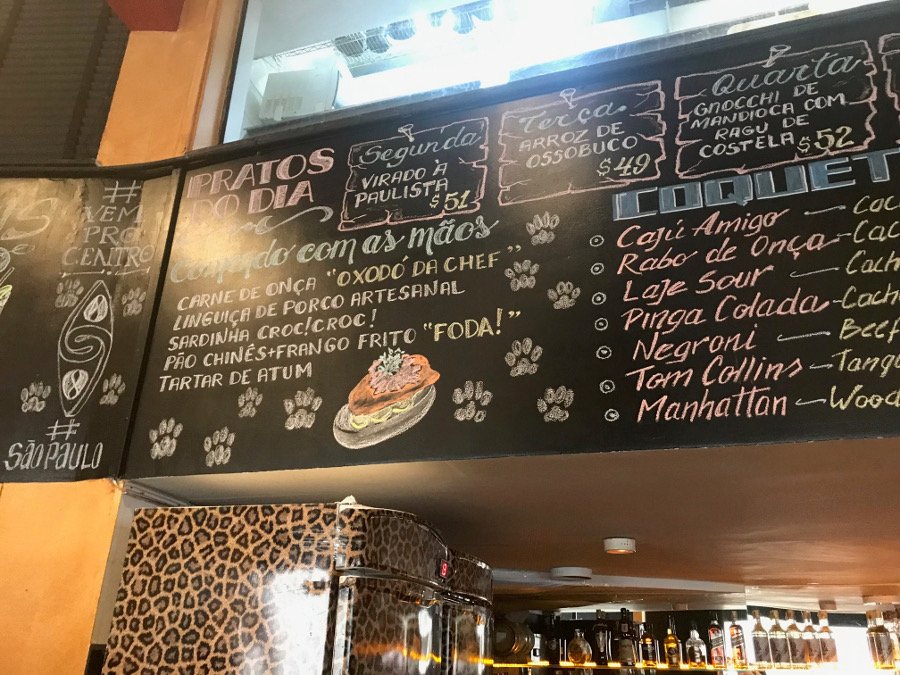 #
VEM
PRO
CENTRO
#
SÃO PAULO
PRATOS
DO DIA
Segunda
VIRADO À
PAULISTA
$51
Terça
ARROZ DE
OSSOBUCO
$49
Quarta
GNOCCHI DE
MANDIOCA COM
RAGU DE
COSTELA $52
Comendo com as mãos
CARNE DE ONÇA "OXODÓ DA CHEF"
LINGUIÇA DE PORCO ARTESANAL
SARDINHA CROC! CROC!
PÃO CHINÊS+FRANGO FRITO "FODA!"
TARTAR DE ATUM
COQUET
Cajú Amigo — Cac
Rabo de Onça — Cac
Laje Sour — Cach
Pinga Colada — Cach
Negroni — Beef
Tom Collins — Tanqu
Manhattan — Wood